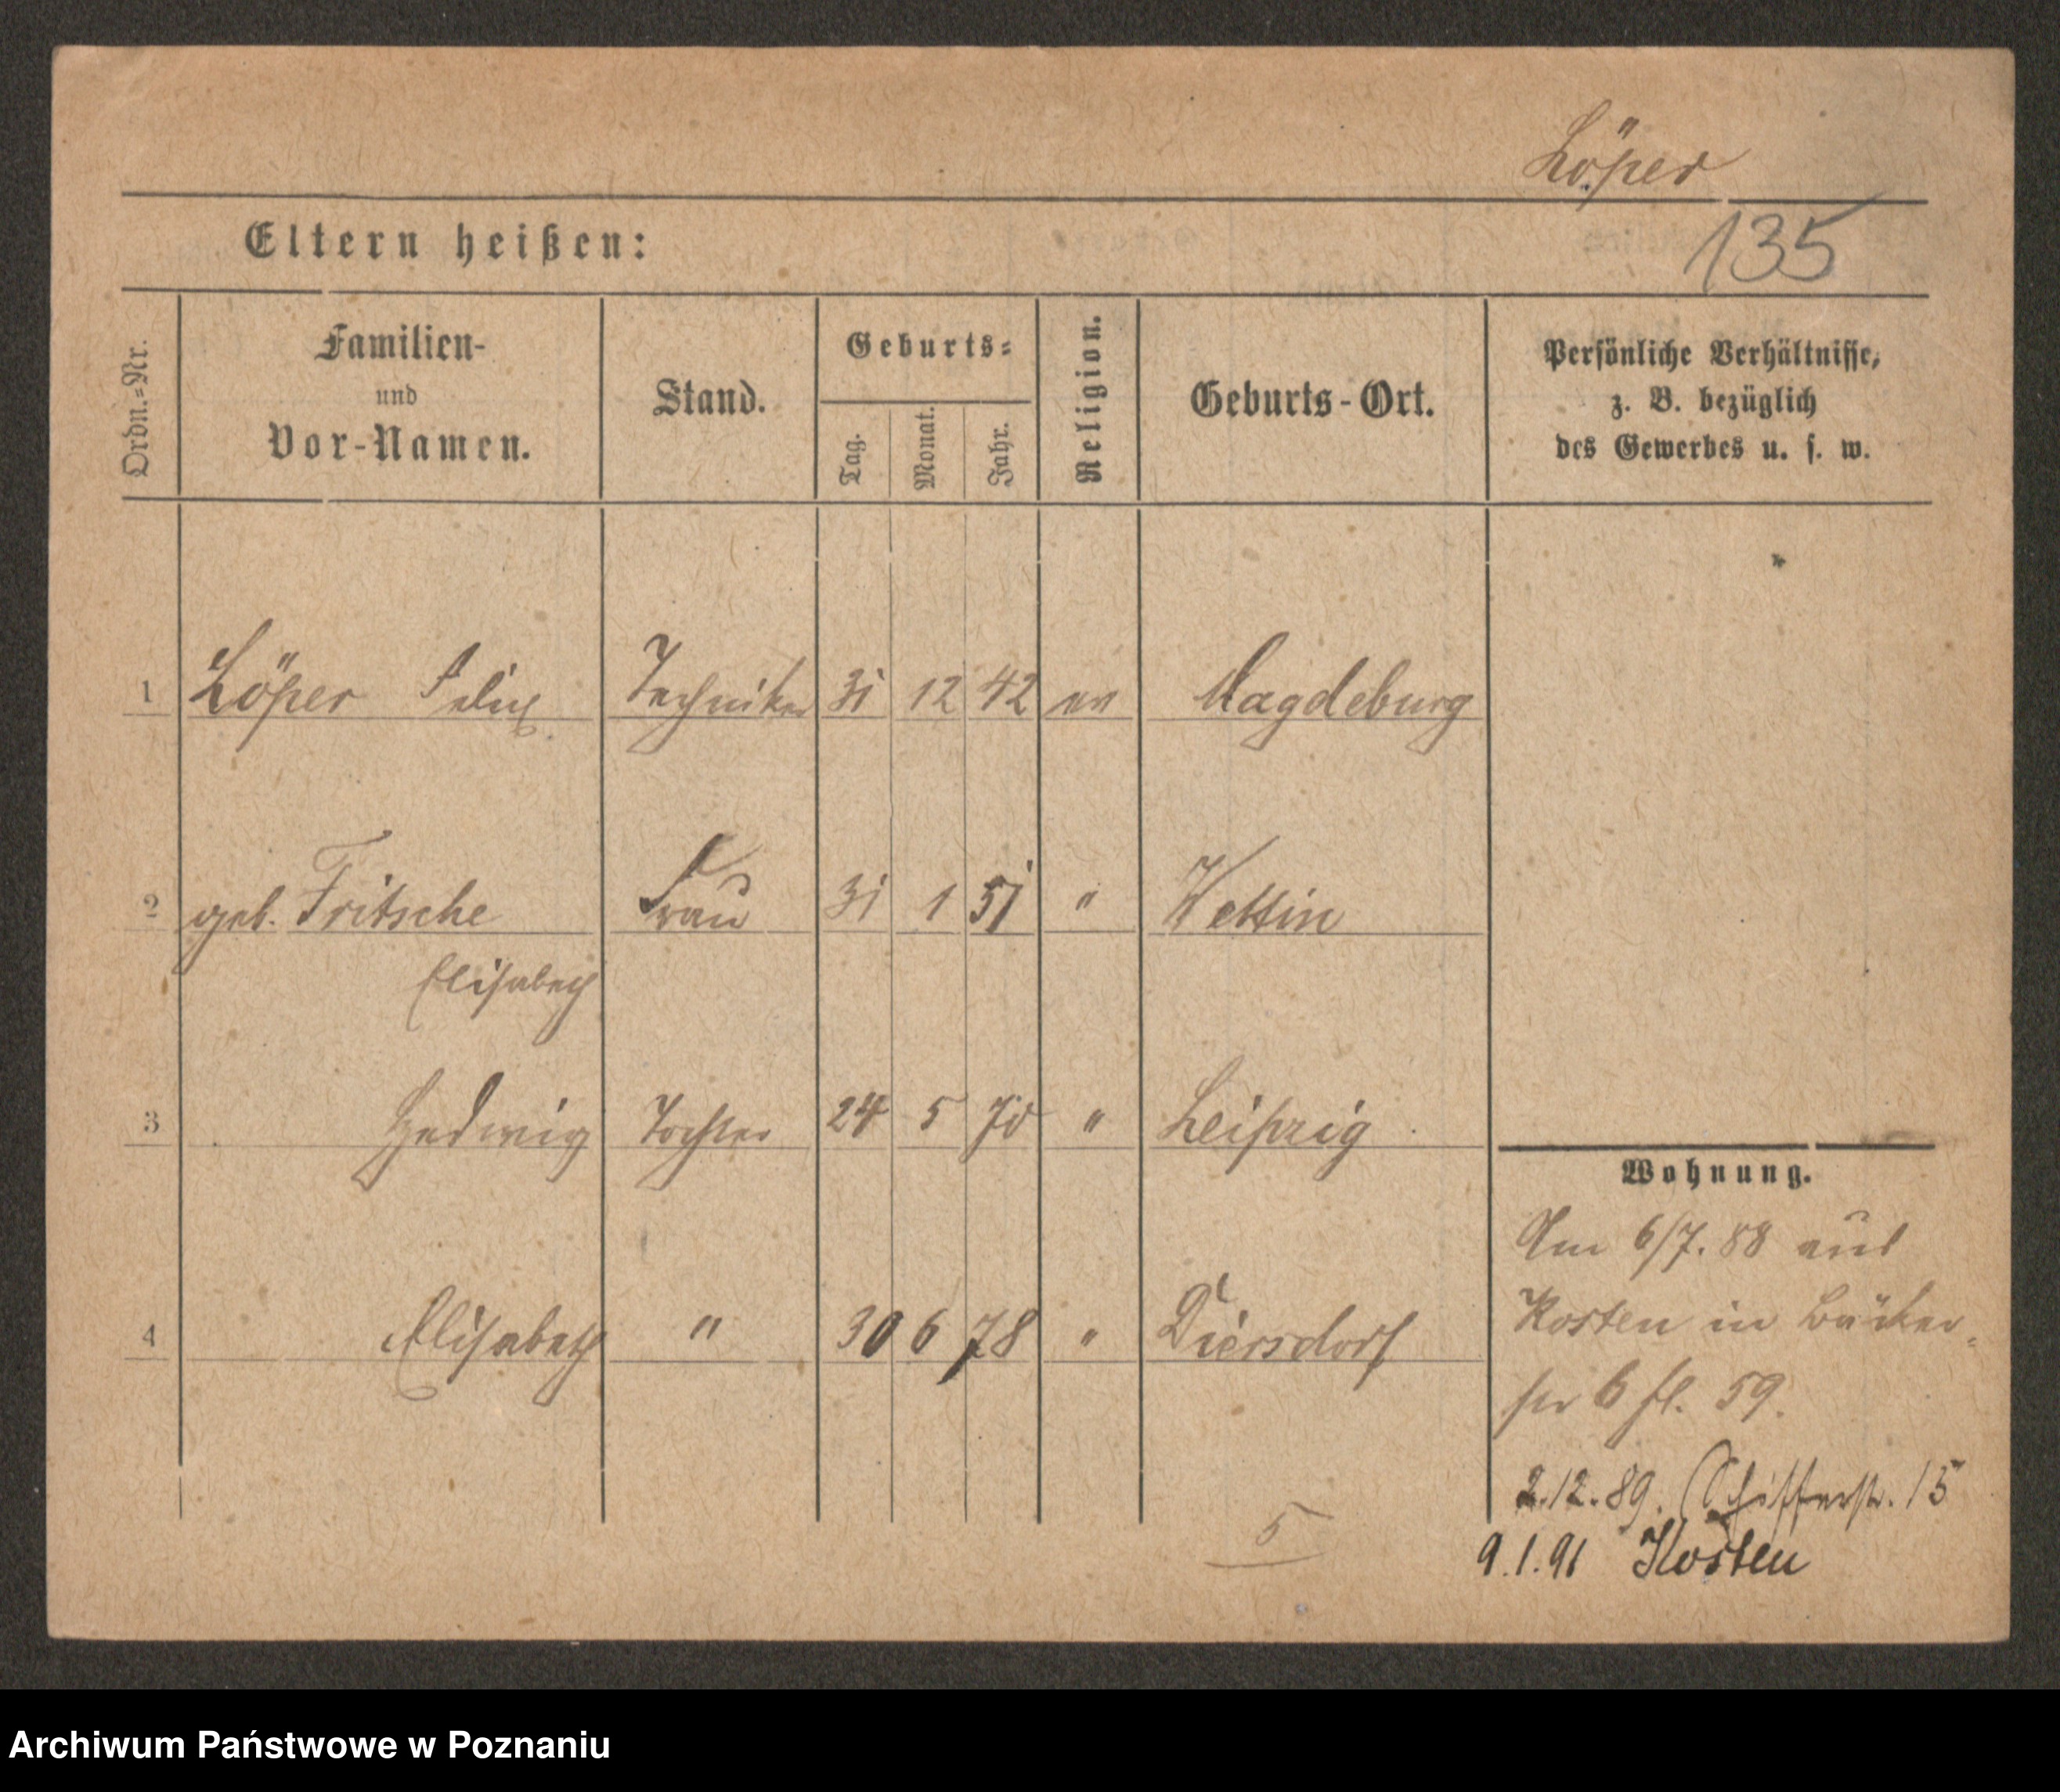 Löper
135
Eltern heißen:
Ordn.=Nr.
Familien-
und
Vor-Namen.
Stand.
Geburts=
Tag.
Monat.
Jahr.
Religion.
Geburts-Ort.
Persönliche Verhältnisse,
z. B. bezüglich
des Gewerbes u. s. w.
1 Löper Felix Techniker 31 12 42 ev Magdeburg
2 geb. Fritsche Frau 31 1 51 " Wettin
Elisabeth
3 Hedwig Tochter 24 5 " Leipzig
4 Elisabeth " 30 6 78 " Diersdorf
Wohnung.
Am 6/7. 88 aus
Kosten in Bäcker-
str 6 fl. 59.
2.12.89. Schifferstr. 15
9.1.91 Kosten
5
Archiwum Państwowe w Poznaniu